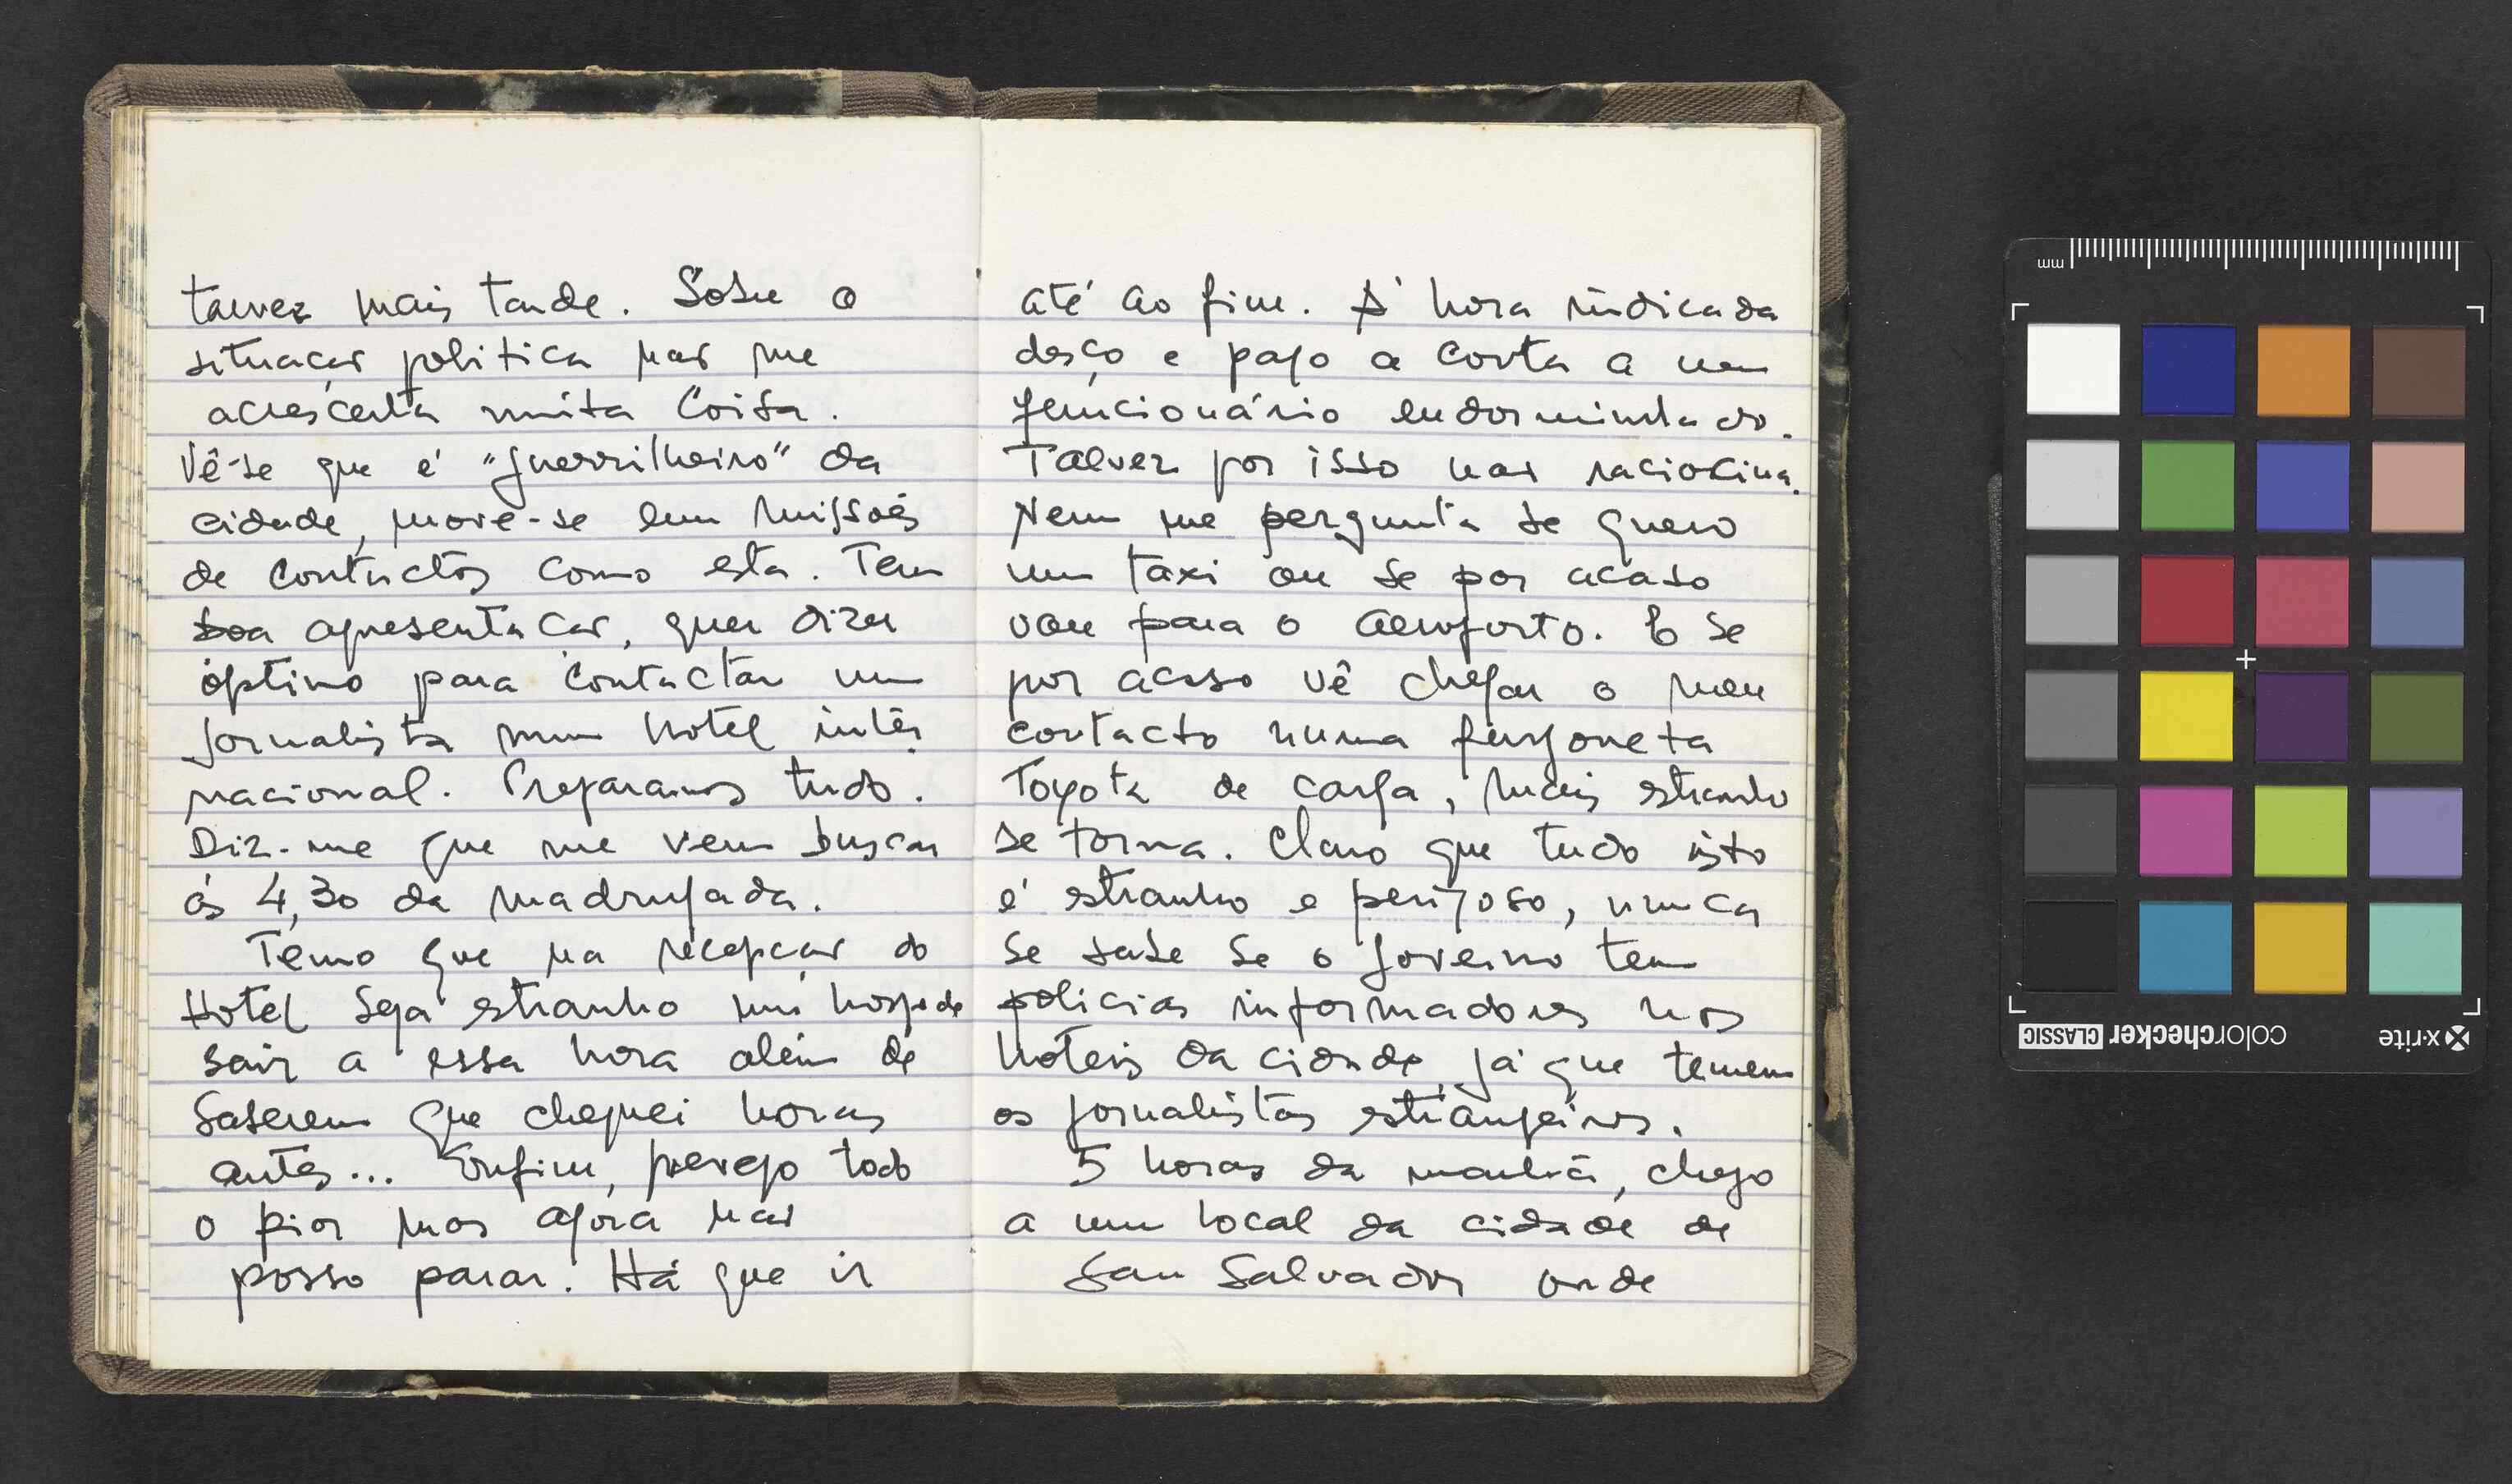 talvez mais tarde. Sobre a
situação politica não me
acrescenta muita coisa.
Vê-se que é "guerrilheiro" da
cidade, move-se em missões
de contactos como esta. Tem
boa apresentação, quer dizer
óptimo para contactar um
jornalista num hotel inter
nacional. Preparamos tudo.
Diz-me que me vem buscar
ás 4,30 da madrugada.
Temo que na recepção do
Hotel seja estranho um hospede
sair a essa hora além de
saberem que cheguei horas
antes... Enfim, prevejo todo
o pior mas agora não
posso parar. Há que ir
até ao fim. Á hora indicada
desço e pago a conta a um
funcionário endorminhado.
Talvez por isso não raciocina.
Nem me pergunta se quero
um taxi ou se por acaso
vou para o aeroporto. E se
por acaso vê chegar o meu
contacto numa furgoneta
Toyota de carga, mais estranho
se torna. Claro que tudo isto
é estranho e perigoso, nunca
se sabe se o governo tem
policias informadores nos
hoteis da cidade, já que temem
os jornalistas estrangeiros.
5 horas da manhã, chego
a um local da cidade de
San Salvador onde
mm
x-rite
colorchecker CLASSIC